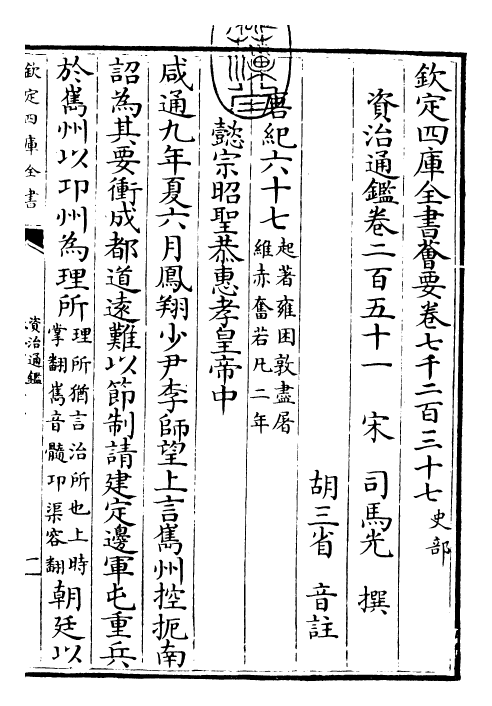 欽定四庫全書薈要卷七千二百三十七 史部
資治通鑑卷二百五十一 宋 司馬光 撰
胡三省 音註
唐紀六十七 起著雍困敦盡屠
維赤奮若凡二年
懿宗昭聖恭惠孝皇帝中
咸通九年夏六月鳳翔少尹李師望上言巂州控扼南
詔為其要衝成都道遠難以節制請建定邊軍屯重兵
於巂州以邛州為理所 理所猶言治所也上時
掌翻巂音髓邛渠容翻 朝廷以
欽定四庫全書
資治通鑑
一